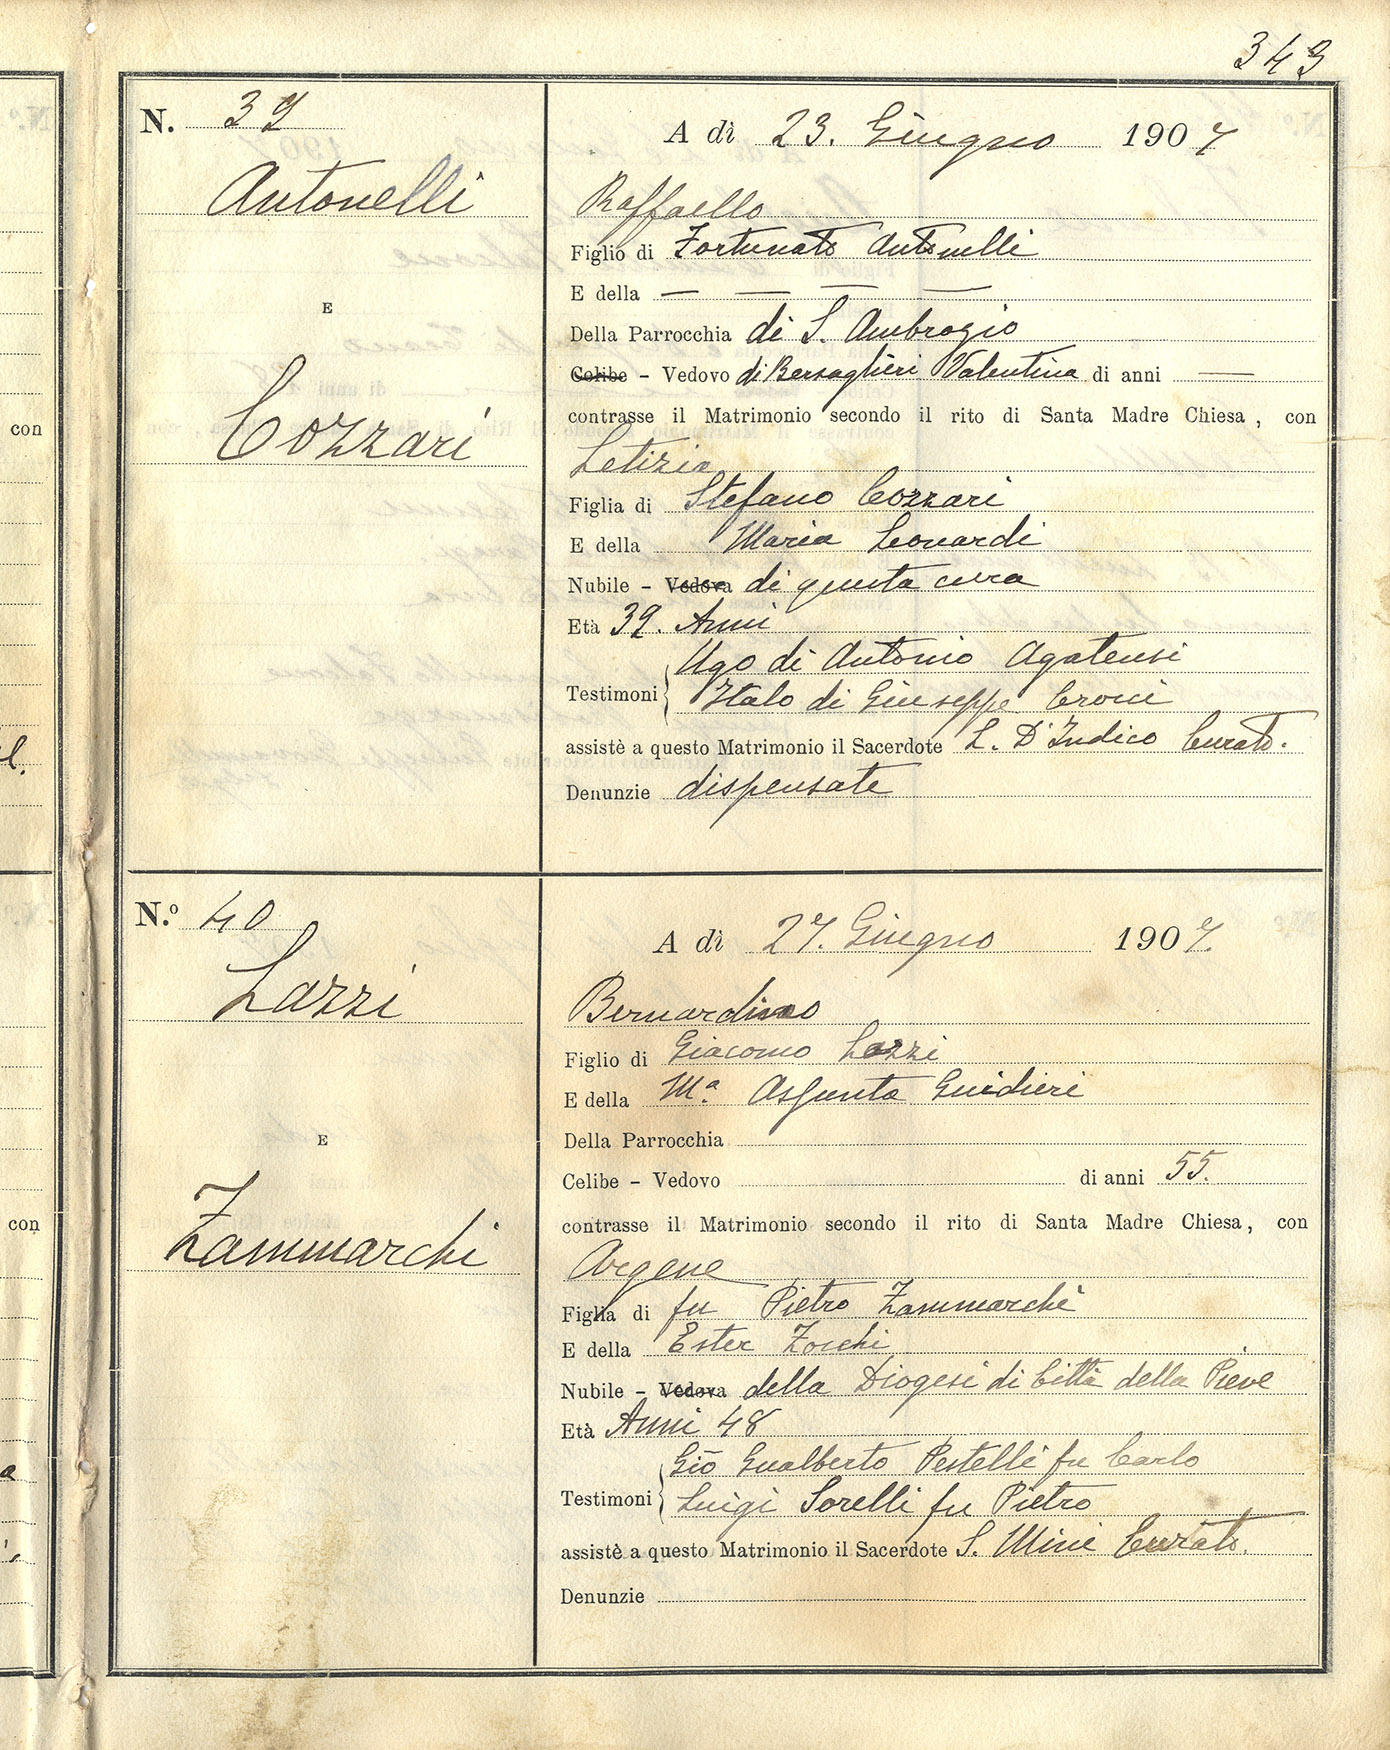 343
N. 39
Antonelli
E
Cozzari
A dì 23. Giugno 1907
Raffaello
Figlio di Fortunato Antonelli
E della — — — —
Della Parrocchia di S. Ambrogio
Celibe - Vedovo di Bersaglieri Valentina di anni —
contrasse il Matrimonio secondo il rito di Santa Madre Chiesa, con
Letizia
Figlia di Stefano Cozzari
E della Maria Leonardi
Nubile - Vedova di questa cura
Età 39. Anni
Ugo di Antonio Agatensi
Testimoni
Italo di Giuseppe Croci
assistè a questo Matrimonio il Sacerdote L. D'Indico Curato.
Denunzie dispensate
N.º 40
Lazzi
E
Zammarchi
A dì 27. Giugno 1907.
Bernardino
Figlio di Giacomo Lazzi
E della Mª. Assunta Guidieri
Della Parrocchia
Celibe - Vedovo di anni 55.
contrasse il Matrimonio secondo il rito di Santa Madre Chiesa, con
Argene
Figlia di fu Pietro Zammarchi
E della Ester Zocchi
Nubile - Vedova della Diogesi di Città della Pieve
Età Anni 48
Gio Gualberto Pestelli fu Carlo
Testimoni
Luigi Sorelli fu Pietro
assistè a questo Matrimonio il Sacerdote S. Mini Curato.
Denunzie
con
l.
con
a